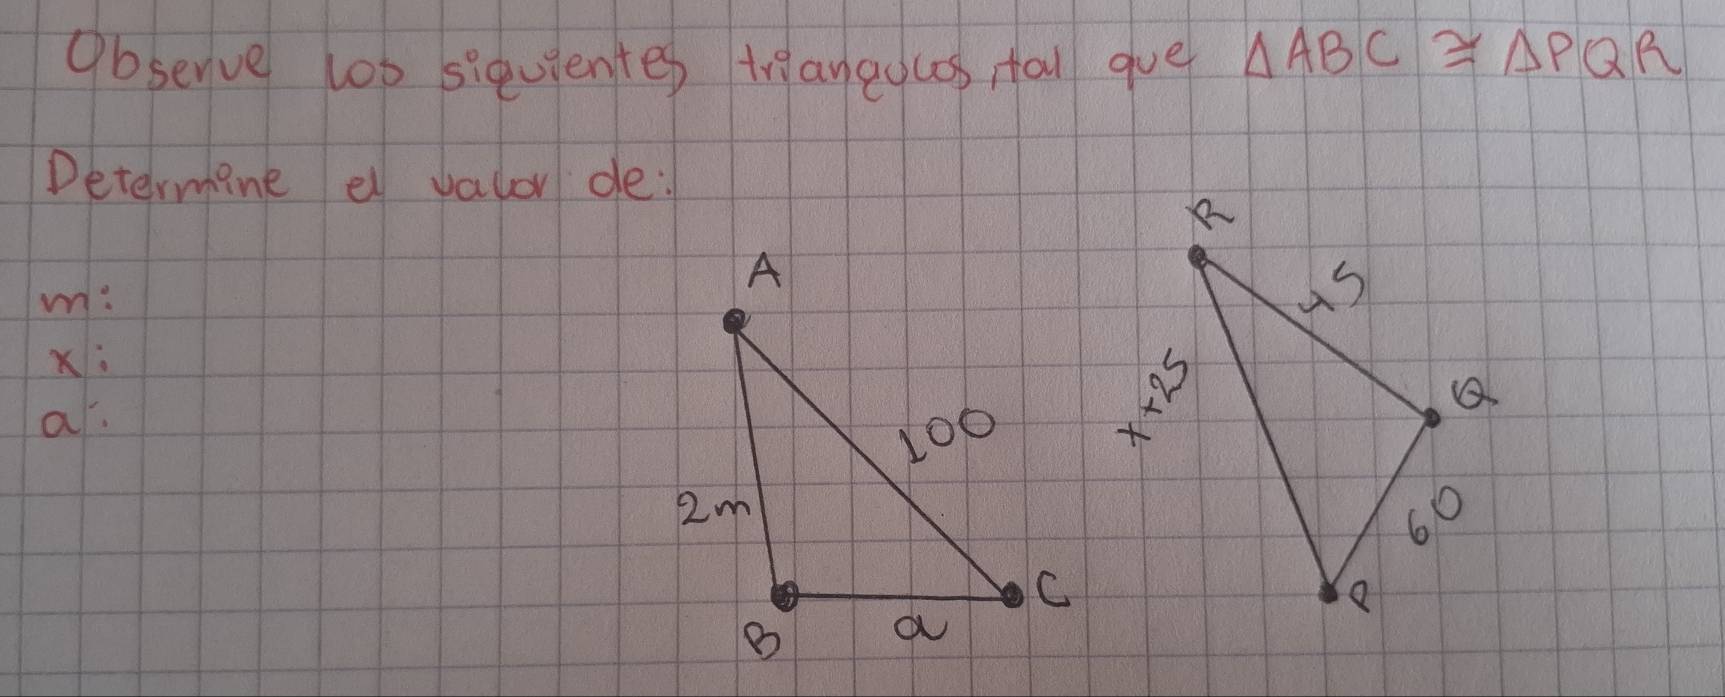 Observe los siguientes triangulos, tal que ΔABC ≅ ΔPQR
Determine el valor de:
m:
x:
a:
A
2m
100
B
a
C
R
45
x+25
Q
60
P